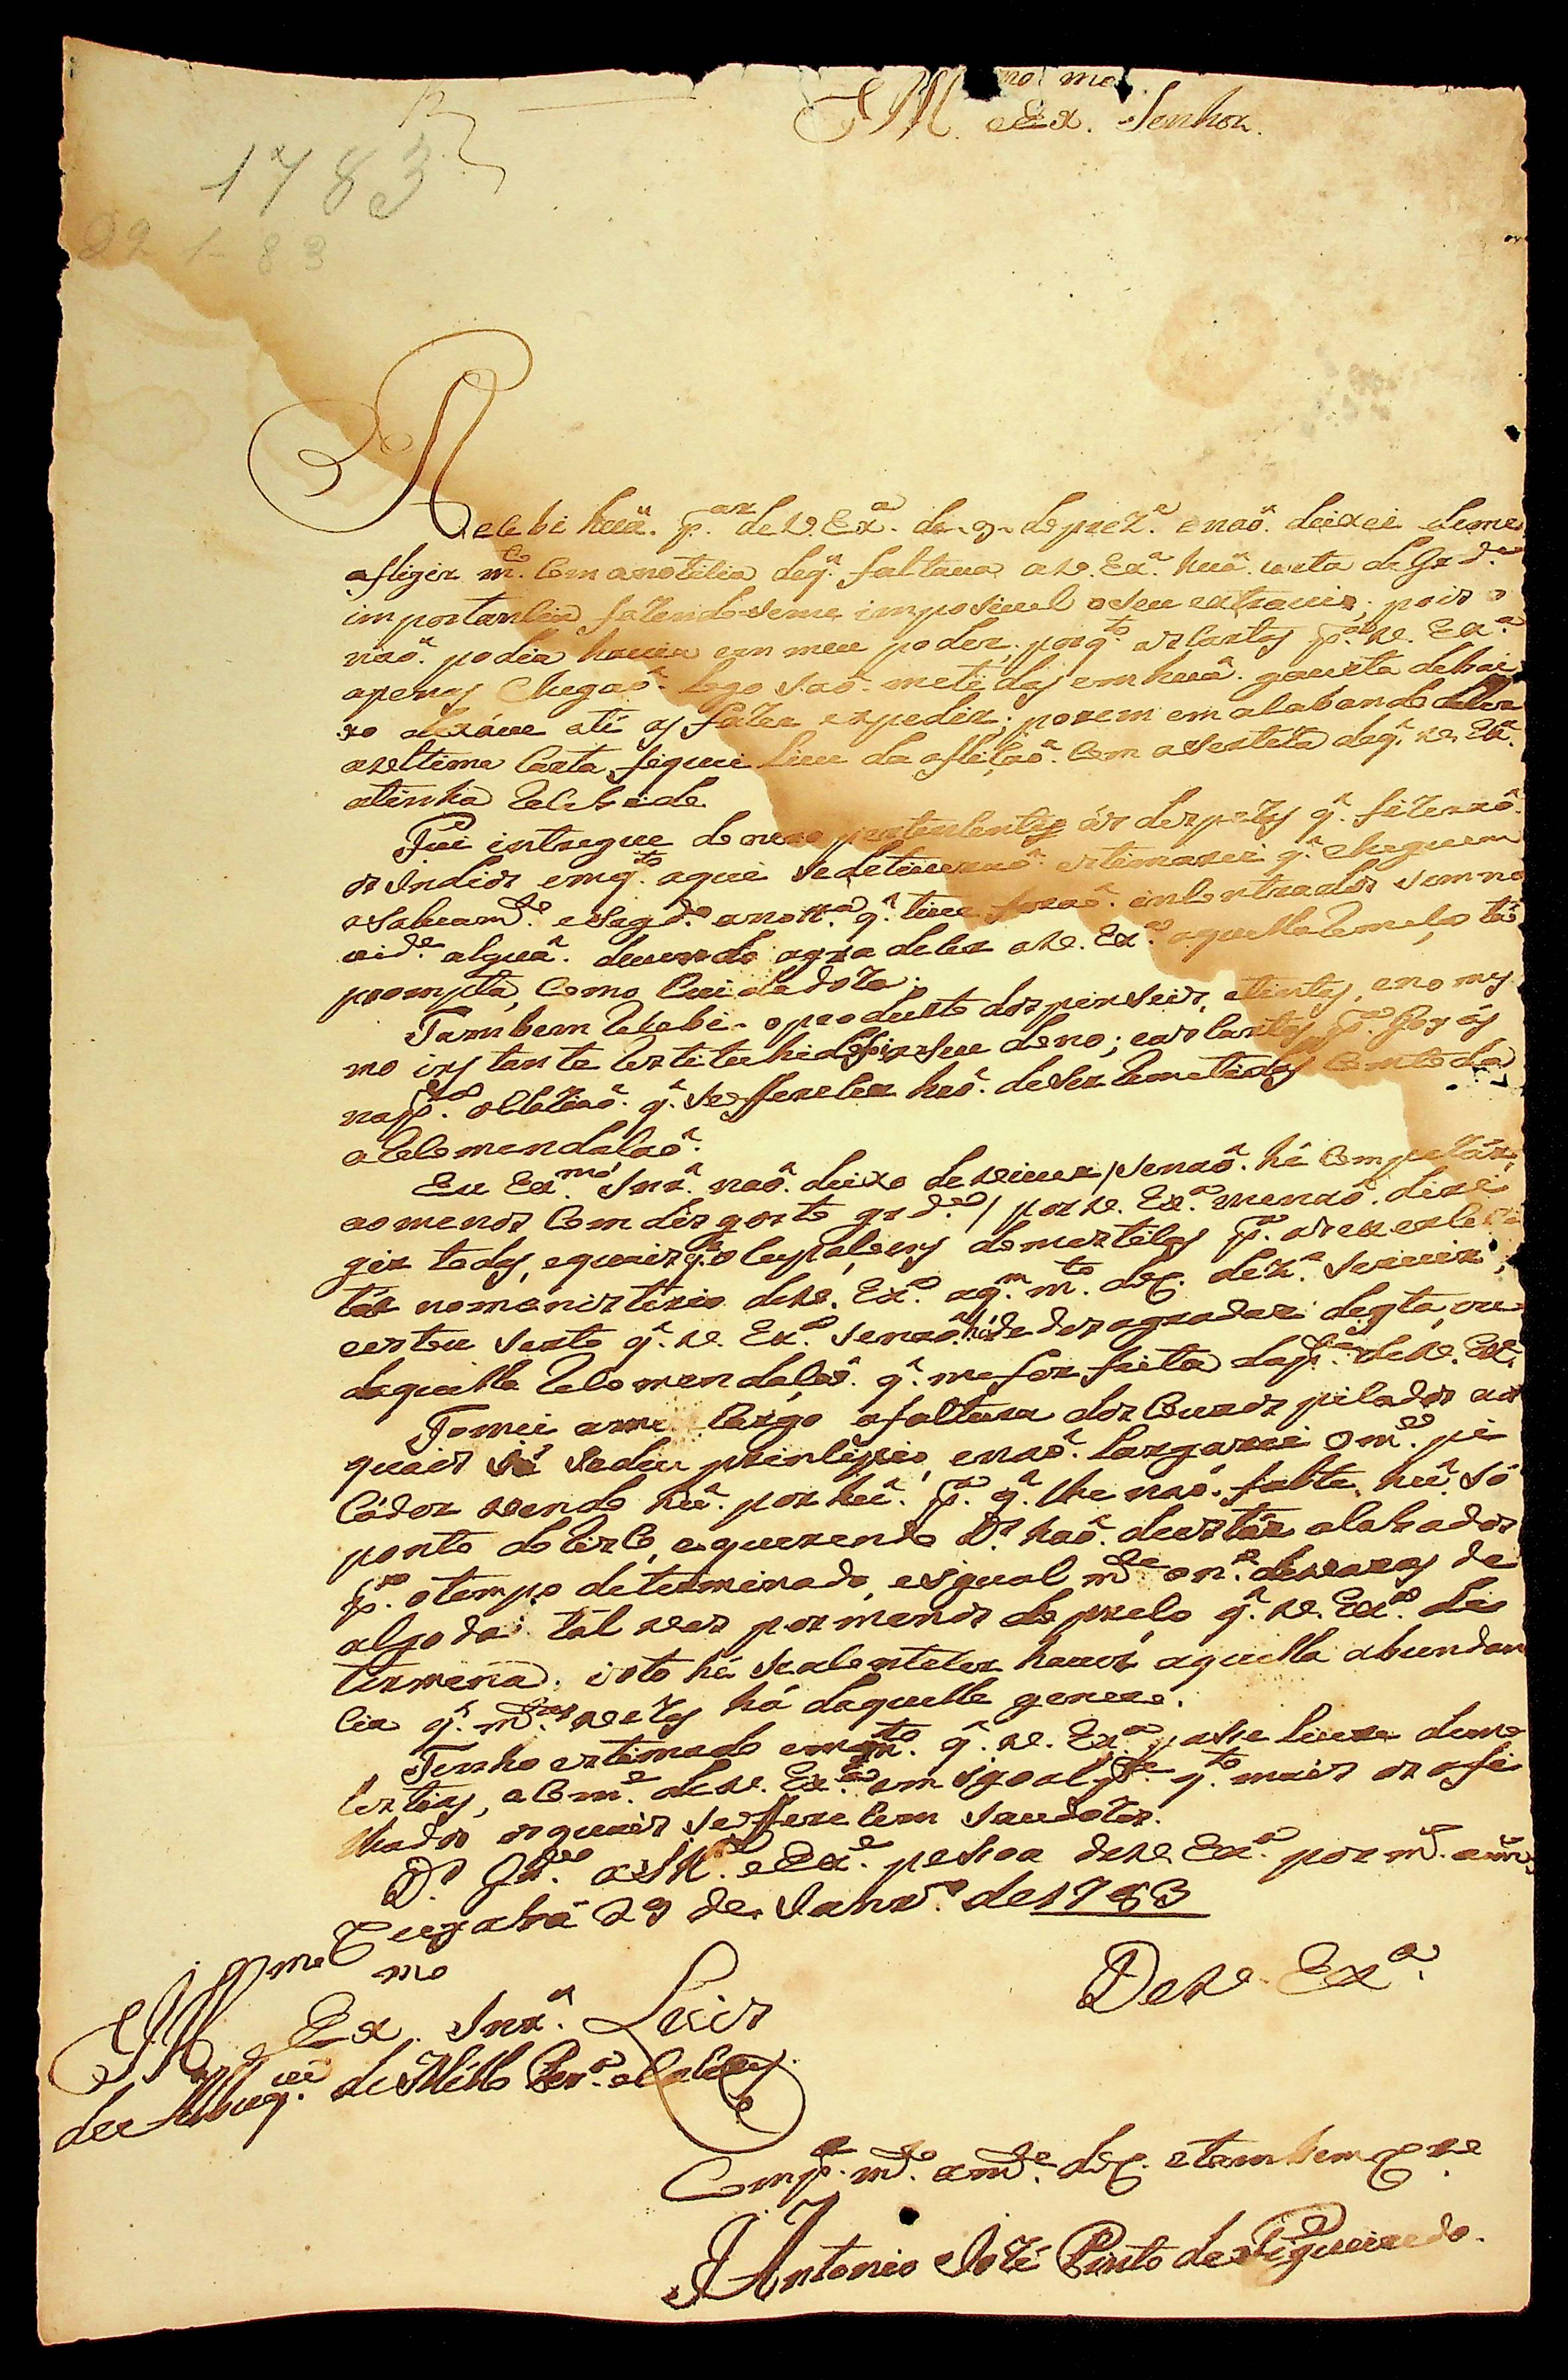 Ill.mo Ex.mo Senhor.
1783
29 1 - 83
Recebi huã. p.ar de V. Ex.a de 9 de prez.e e naõ. deixei de me
afligir m.to com a noticia de q̃. faltava a V. Ex.a huã. carta de Gr.de
importancia fazendo-seme imposivel o seu extravio; pois o
naõ. podia haver em meu poder, porq.to as Cartas p.a V. Ex.a
apenas Chegaõ. logo saõ. metidas em huã. gaveta debai
xo de xáve até as fazer expedir; porem em acabando de ler
a ultima Carta, fiquei livre da afliçaõ. Com a serteza de q̃. V. Ex.a
a tinha recebido.
Fui intregue do pertencentes ás despezas q̃. fizeraõ.
os Indios emq.to aqui se detiveraõ. estimarei q̃. cheguem
a Salvam.to e seg.do a not.a q̃. tive foraõ. incontrados sem no
vid.e alguã. devendo agradecer a V. Ex.a aquella remeça taõ
prompta, Como Cuidadoza.
Tambem recebi o producto dos e tintas, e no mes
mo instante restetuhido seu dono; e as Cartas p.a Goyás
na p.ra ocaziaõ. q̃. se offerecer haõ. de ser remetidas Com toda
a recomendacaõ.
Eu Ex.mo Snr̃. naõ. deixo de viver / se naõ. há Com pezár,
ao menos Com disgosto gr.de / por V. Ex.a me naõ. diri
gir todas, e quais q.r ocupaçoens domesticas p.a as exerci
tár no menisterio de V. Ex.a a q.m m.to dez.o servir;
e estou serto q̃. V. Ex.a se naõ. há de dezagradar desta, ou
daquella recomendaçaõ. q̃. me for feita da p.te de V. Ex.a
Tomei a meu Cargo a factura dos Couros pilados aos
quais já se deu principio, e naõ. largarei o m.e pi
cádor vendo hũ. por hũ. p.a q̃. lhe naõ. falte hũ. só
ponto do risco, e querendo D.s haõ. de estár acabados
p.a o tempo determinado, e igual m.te o n.o de varas de
algodaõ: tal ves por menos do preço q̃. V. Ex.a de
termina. isto hé se acontecer haver aquella abundan
cia q̃. m.tas vezes há daquelle genero.
Tenho estimado em q̃. V. Ex.a passe livre de mo
lestias, e Com.e de V. Ex.a em igoal p.te q.to mais os afi
lhados os quais se offerecem saudozos.
D.s G.de a Ill.ma e Ex.ma pessoa de V. Ex.a por m.s ann̄.
Cuyabá 29 de Janr.o de 1783
De V. Ex.a
Ill.mo e Ex.mo Snr̃. Luis
de Albuq.ue de Mello Per.a e Caceres
Comp.e m.to am.te e tambem
Antonio Jozé Pinto de Figueiredo.